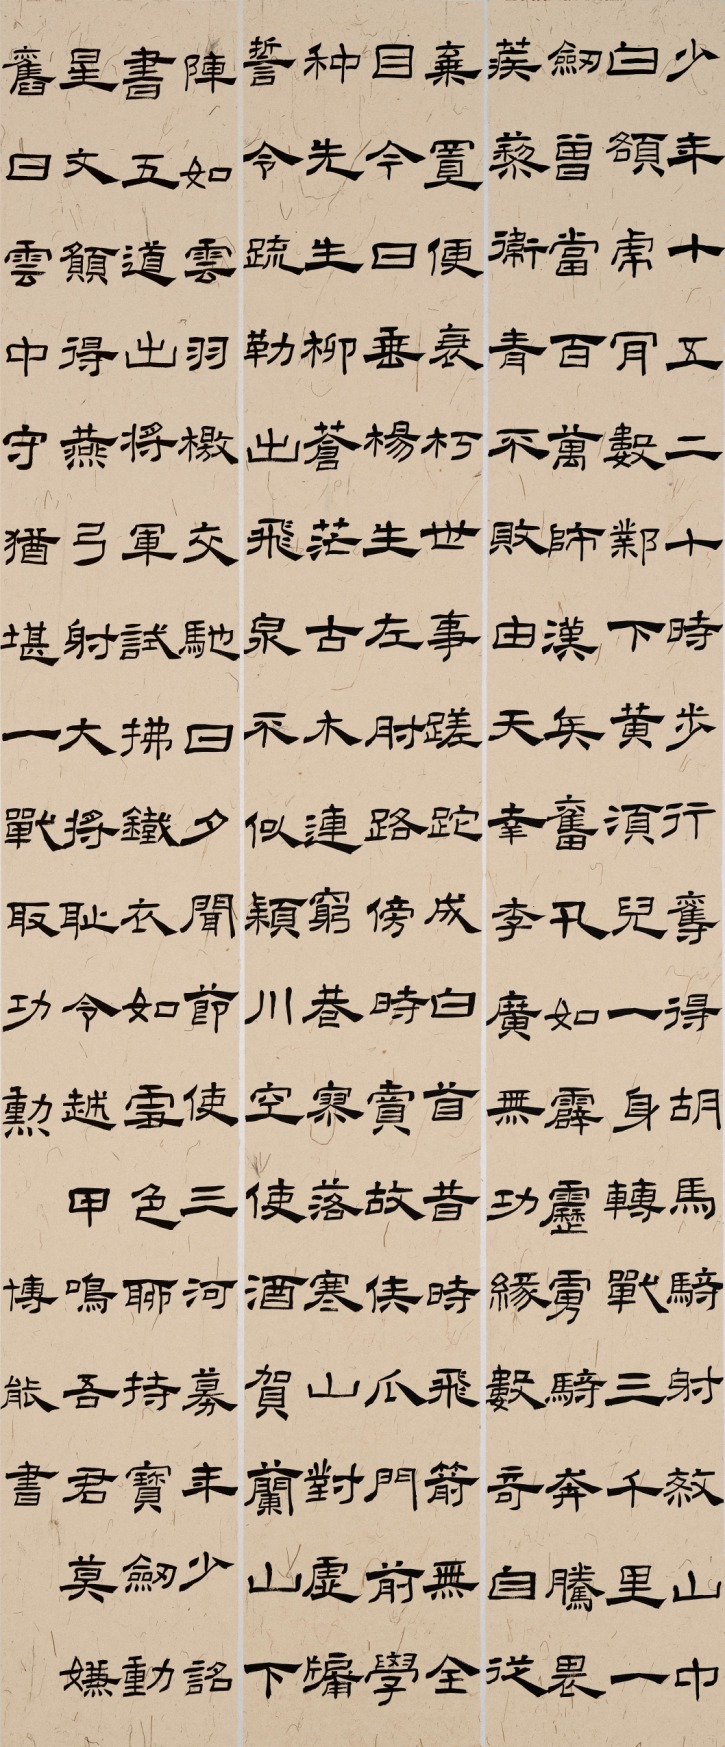 少年十五二十時步行奪得胡馬騎射殺山中
白額虎肯數鄴下黃須兒一身轉戰三千里一
劍曾當百萬師漢兵奮迅如霹靂虜騎奔騰畏
蒺藜衛青不敗由天幸李廣無功緣數奇自從
棄置便衰朽世事蹉跎成白首昔時飛箭無全
目今日垂楊生左肘路傍時賣故侯瓜門前學
种先生柳蒼茫古木連窮巷寥落寒山對虛牖
誓令疏勒出飛泉不似穎川空使酒賀蘭山下
陣如雲羽檄交馳日夕聞節使三河募年少詔
書五道出將軍試拂鐵衣如雪色聊持寶劍動
星文願得燕弓射大將耻令越甲鳴吾君莫嫌
舊日雲中守猶堪一戰取功勳 博能書